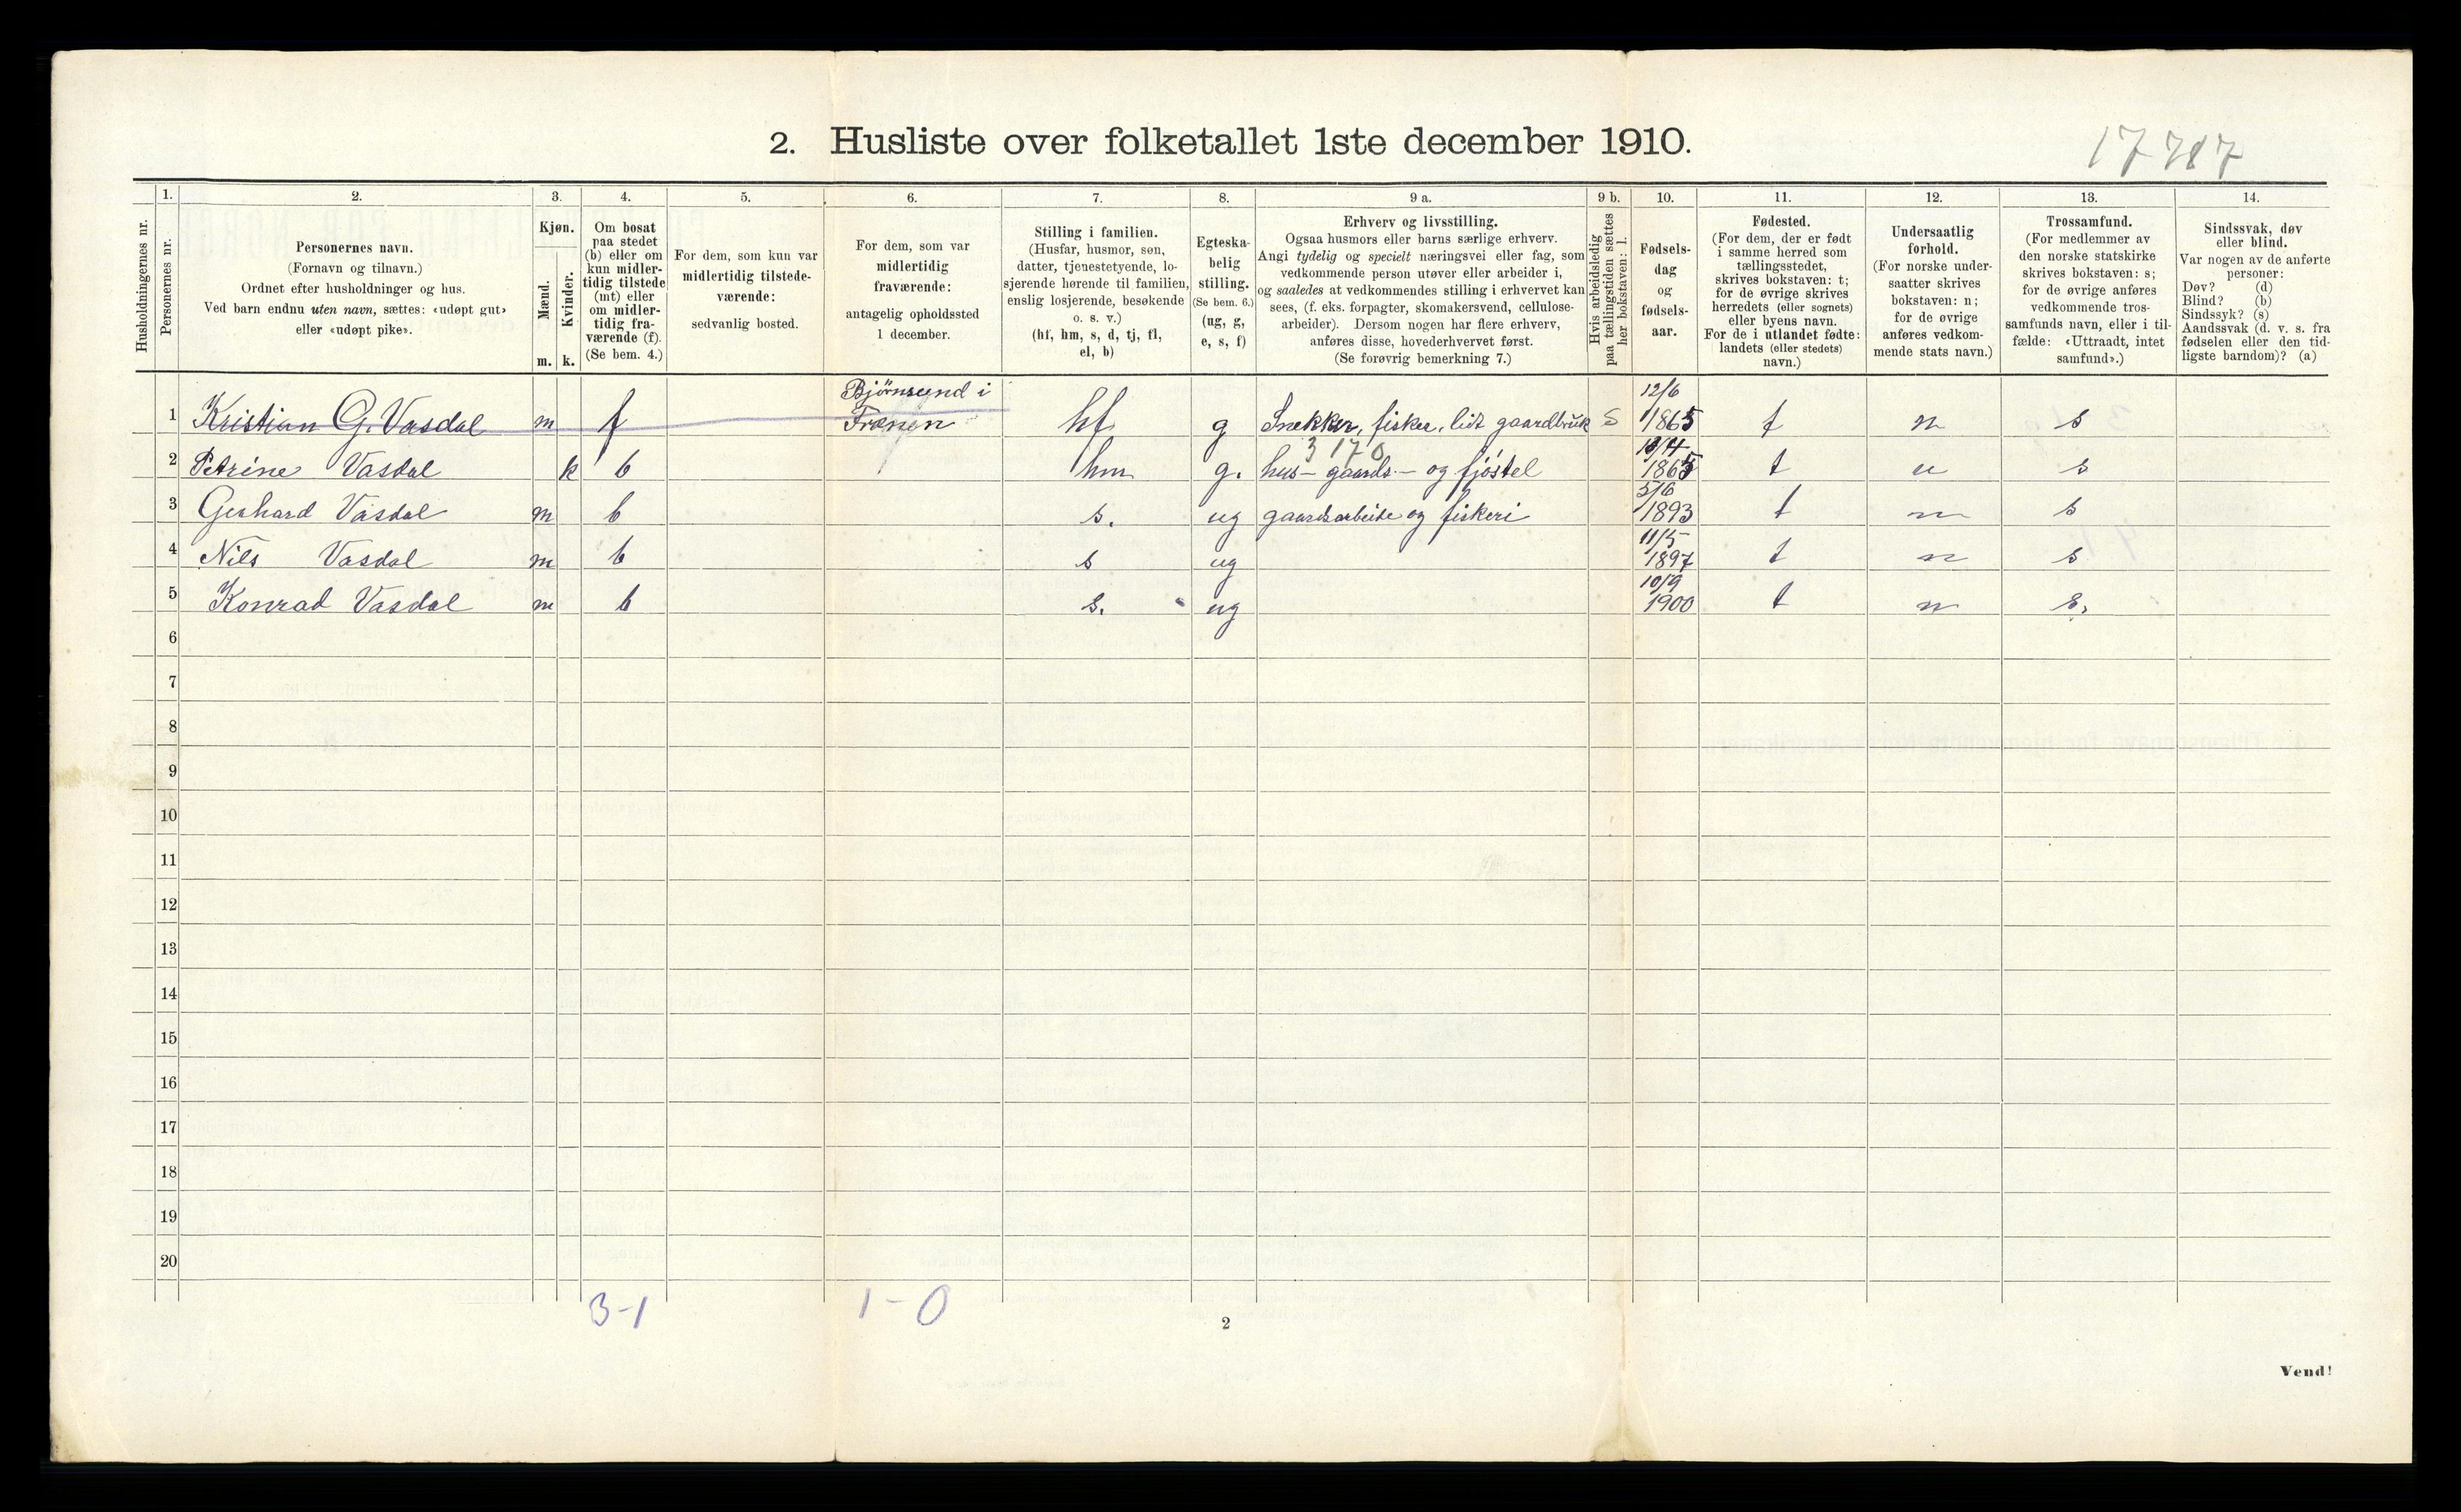 2. Husliste over folketallet 1ste december 1910.
17 717
1. 2. 3. 4. 5. 6. 7. 8. 9 a. 9 b. 10. 11. 12. 13. 14.
Husholdningernes nr.
Personernes nr.
Personernes navn.
(Fornavn og tilnavn.)
Ordnet efter husholdninger og hus.
Ved barn endnu uten navn, sættes: «udøpt gut»
eller «udøpt pike».
Kjøn.
Mænd.
Kvinder.
m. k.
Om bosat
paa stedet
(b) eller om
kun midler-
tidig tilstede
(mt) eller
om midler-
tidig fra-
værende (f).
(Se bem. 4.)
For dem, som kun var
midlertidig tilstede-
værende:
sedvanlig bosted.
For dem, som var
midlertidig
fraværende:
antagelig opholdssted
1 december.
Stilling i familien.
(Husfar, husmor, søn,
datter, tjenestetyende, lo-
sjerende hørende til familien,
enslig losjerende, besøkende
o. s. v.)
(hf, hm, s, d, tj, fl,
el, b)
Egteska-
belig
stilling.
(Se bem. 6.)
(ug, g,
e, s, f)
Erhverv og livsstilling.
Ogsaa husmors eller barns særlige erhverv.
Angi tydelig og specielt næringsvei eller fag, som
vedkommende person utøver eller arbeider i,
og saaledes at vedkommendes stilling i erhvervet kan
sees, (f. eks. forpagter, skomakersvend, cellulose-
arbeider). Dersom nogen har flere erhverv,
anføres disse, hovederhvervet først.
(Se forøvrig bemerkning 7.)
Hvis arbeidsledig
paa tællingstiden sættes
her bokstaven: l.
Fødsels-
dag
og
fødsels-
aar.
Fødested.
(For dem, der er født
i samme herred som
tællingsstedet,
skrives bokstaven: t;
for de øvrige skrives
herredets (eller sognets)
eller byens navn.
For de i utlandet fødte:
landets (eller stedets)
navn.)
Undersaatlig
forhold.
(For norske under-
saatter skrives
bokstaven: n;
for de øvrige
anføres vedkom-
mende stats navn.)
Trossamfund.
(For medlemmer av
den norske statskirke
skrives bokstaven: s;
for de øvrige anføres
vedkommende tros-
samfunds navn, eller i til-
fælde: «Uttraadt, intet
samfund».)
Sindssvak, døv
eller blind.
Var nogen av de anførte
personer:
Døv? (d)
Blind? (b)
Sindssyk? (s)
Aandssvak (d. v. s. fra
fødselen eller den tid-
ligste barndom)? (a)
Bjørnsund i 12/6
1 Kristian G. Vasdal m f Frænen hf g Snekker, fisker, lidt gaardbruk S 1865 t n s
3 170 13/4
2 Petrine Vasdal k b hm g. hus- gaards- og fjøstel 1865 t n s
5/6
3 Gerhard Vasdal m b s. ug gaardsarbeide og fiskeri 1893 t n s
11/5
4 Nils Vasdal m b s ug 1897 t n s
10/9
5 Konrad Vasdal m b s. ug 1900 t n s.
6
7
8
9
10
11
12
13
14
15
16
17
18
19
20
3-1 1-0
2
Vend!